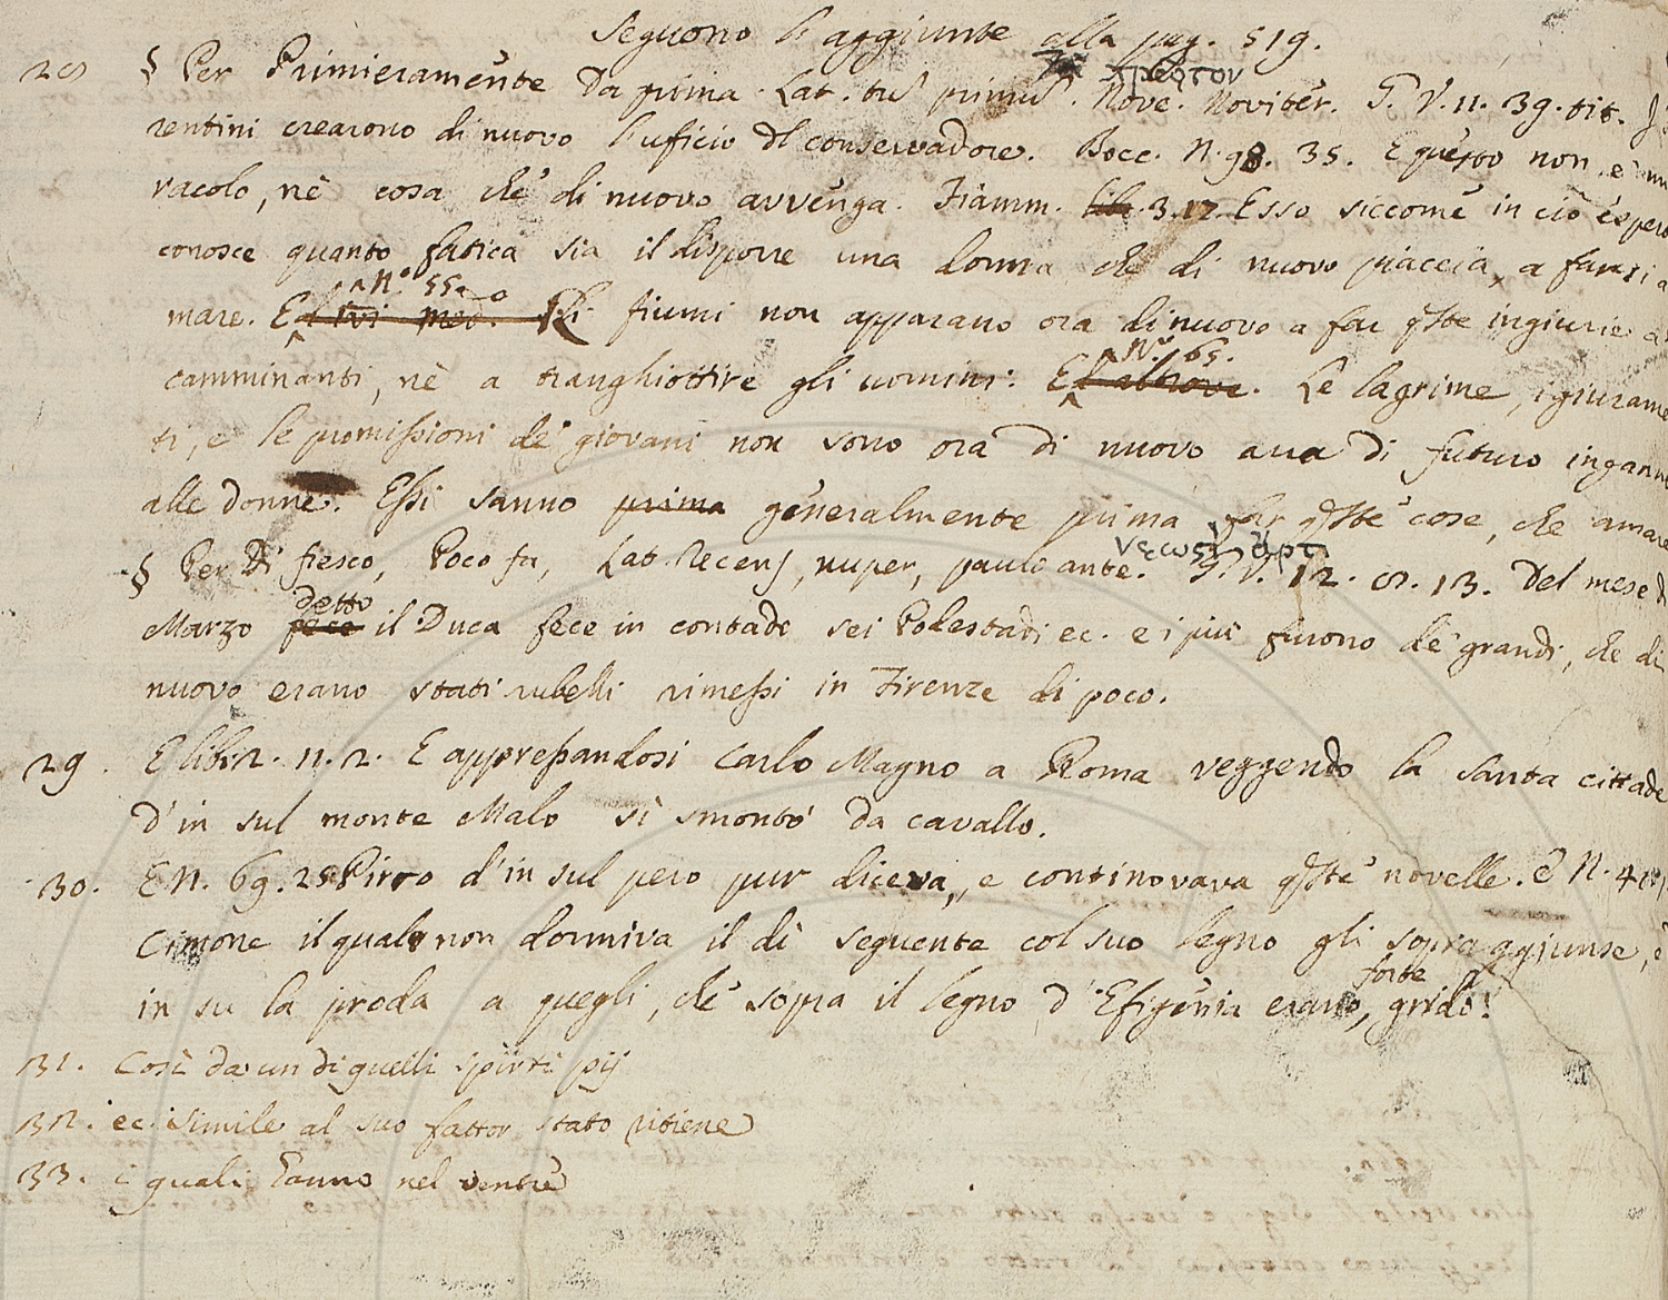 Seguono l'aggiunte alla pag. 519.
28 § Per Primieramente Da prima. Lat. tu primu. πρῶτον Nove. Noviter. G. V. 11. 39. tit.
rentini crearono di nuovo l'uficio dl conservadore. Bocc. N. 98. 35. E questo non è
racolo, nè cosa che di nuovo avvenga. Fiamm. lib. 3. 12. Esso siccome in ciò espert
conosce quanto fatica sia il disporre una donna che di nuovo piaccia, a farsi a
mare. E N.º 55. l ivi med.º Gli fiumi non apparano ora di nuovo a far qste ingiurie a
camminanti, nè a tranghiottire gli uomini. E N.º 65. l altrove. Le lagrime, i giurame
ti, e le promissioni de' giovani non sono ora di nuovo arra di futuro ingann
alle donne. Essi sanno prima generalmente prima far qste cose, che amare
§ Per Di fresco, Poco fa, Lat. Recens, nuper, paulo ante. νεωστὶ ἄρτι G. V. 12. 8. 13. Del mese d
Marzo fece detto il Duca fece in contado sei Podestadi ec. e i più furono de' grandi, che di
nuovo erano stati rubelli rimessi in Firenze di poco.
29. E lib. 2. 11. 2. E appressandosi Carlo Magno a Roma veggendo la santa cittade
d'in sul monte Malo si smontò da cavallo.
30. E N. 69. 25 Pirro d'in sul pero pur diceva, e continovava qste novelle. E N. 41
Cimone il quale non dormiva il dì seguente col suo legno gli sopraggiunse, e
in su la proda a quegli, che sopra il legno d'Efigenia erano, forte gridò!
31. Così da un di quelli spirti pij
32. ec. simile al suo fattor stato ritiene
33. i quali hanno nel ventre